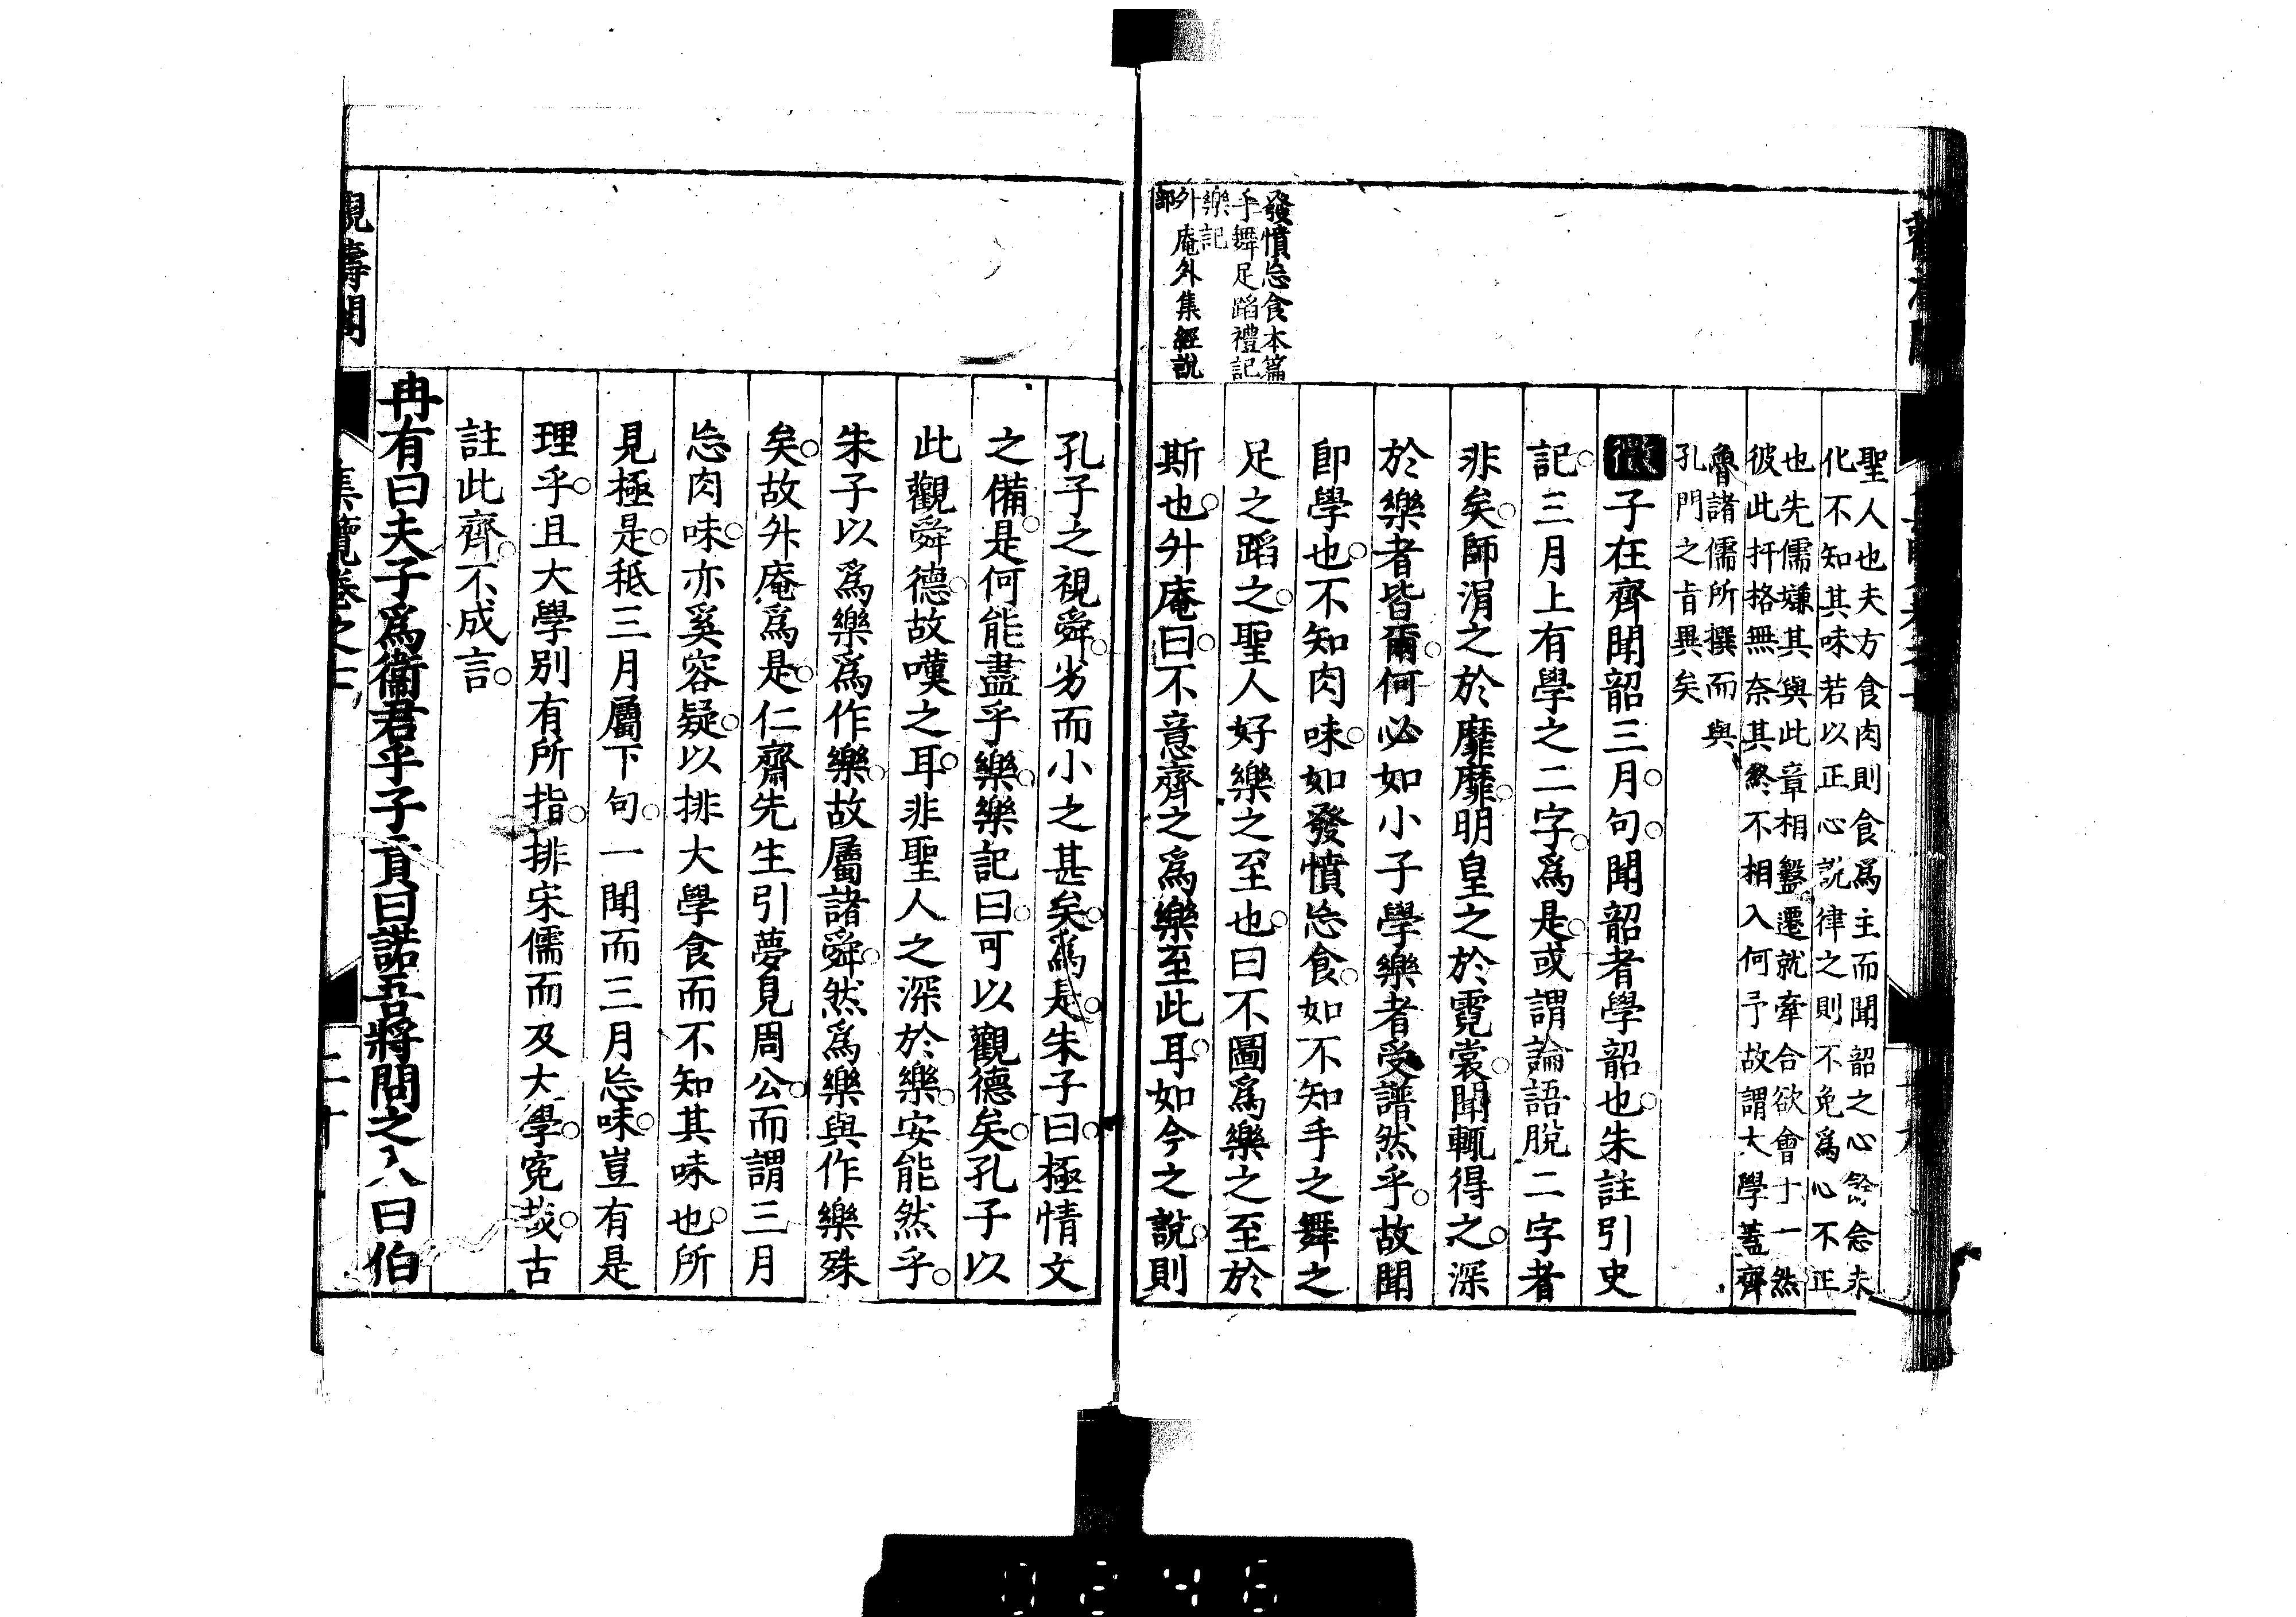 發憤忘食本篇
手舞足蹈禮記
樂記
升庵外集經說
部
聖人也夫方食肉則食爲主而聞韶之心餘念未
化不知其味若以正心說律之則不免爲心不正
也先儒嫌其與此章相盭遷就牽合欲會十一然
彼此扞格無奈其終不相入何予故謂大學蓋齊
魯諸儒所撰而與
孔門之旨異矣
徵子在齊聞韶三月句聞韶者學韶也朱註引史
記三月上有學之二字爲是或謂論語脫二字者
非矣師涓之於靡靡明皇之於霓裳聞輒得之深
於樂者皆爾何必如小子學樂者受譜然乎故聞
卽學也不知肉味如發憤忘食如不知手之舞之
足之蹈之聖人好樂之至也曰不圖爲樂之至於
斯也升庵曰不意齊之爲樂至此耳如今之說則
孔子之視舜劣而小之甚矣爲是朱子曰極情文
之備是何能盡乎樂樂記曰可以觀德矣孔子以
此觀舜德故嘆之耳非聖人之深於樂安能然乎
朱子以爲樂爲作樂故屬諸舜然爲樂與作樂殊
矣故升庵爲是仁齋先生引夢見周公而謂三月
忘肉味亦奚容疑以排大學食而不知其味也所
見極是秪三月屬下句一聞而三月忘味豈有是
理乎且大學別有所指排宋儒而及大學寃哉古
註此齊不成言
冉有曰夫子爲衞君乎子貢曰諾吾將問之入曰伯
觀濤閣
集覽卷之七
二十
0246